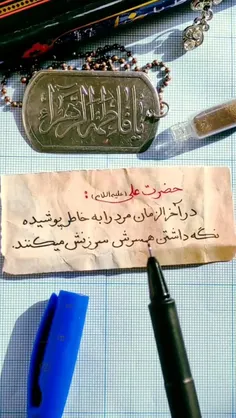 یا فاطمة الزهراء
حضرت علی (علیه السلام) :
در آخرالزمان مرد را به خاطر پوشیده
نگه داشتن همسرش سرزنش میکنند.